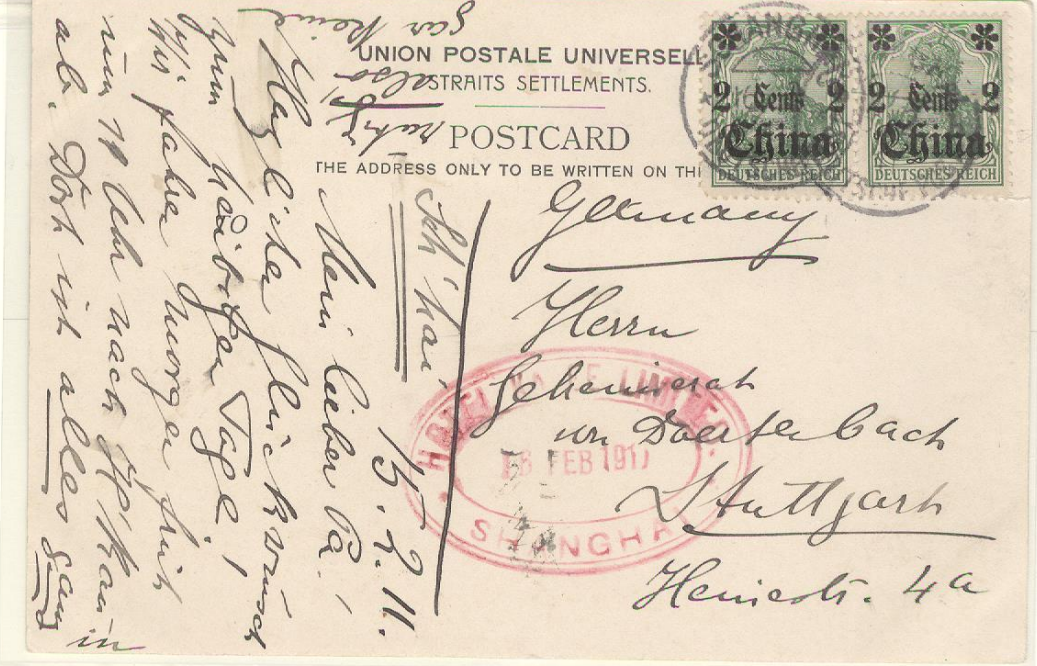 UNION POSTALE UNIVERSELL
STRAITS SETTLEMENTS.
POSTCARD
THE ADDRESS ONLY TO BE WRITTEN ON THI
2 Cents 2
China
DEUTSCHES REICH
2 Cents 2
China
DEUTSCHES REICH
Germany
Herrn
Geheimrat
von Doertenbach
Stuttgart
Heinestr. 4a
HOTEL LIMITED
16 FEB 1911
SHANGHAI
Sh'hai
15.2.11.
Mein lieber Pa!
Herzliche Glückwünsch
zum heutigen Tage!
Wir fahren morgen früh
nun Uhr nach H'kau
ab. Dort ist alles ganz
in
also
gar keine